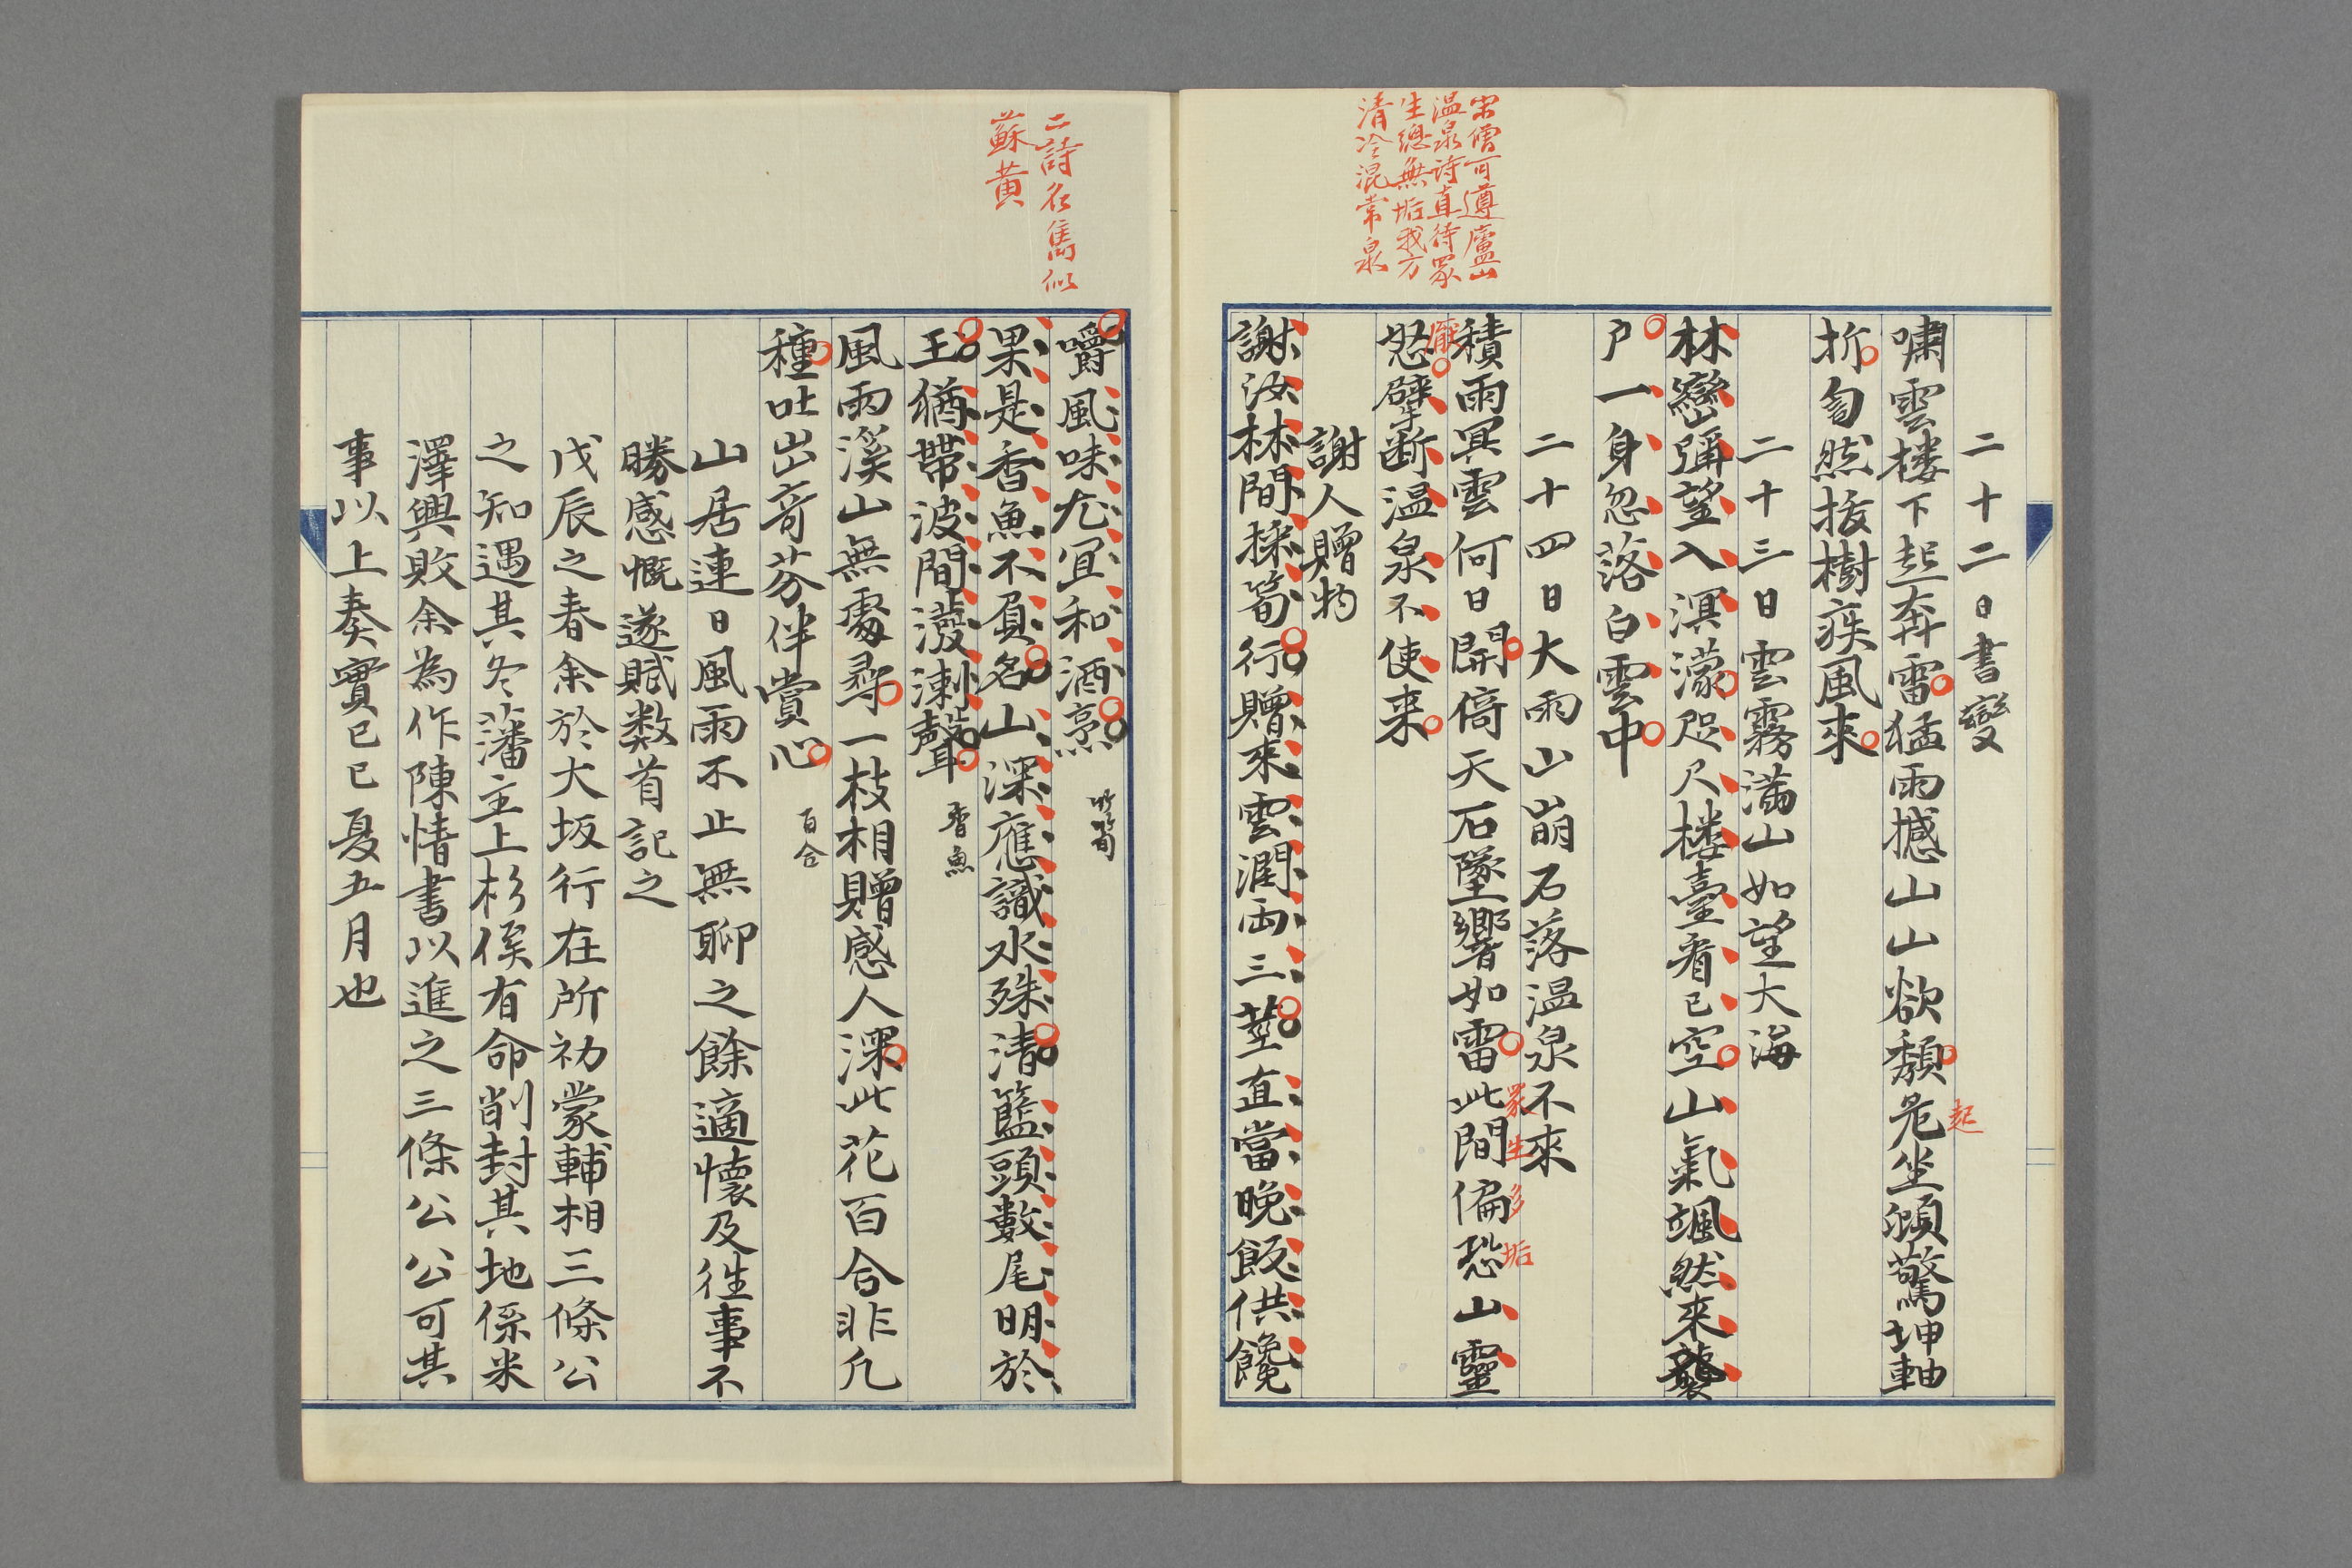 宋僧可遵廬山
温泉詩直待衆
生總無垢我方
清冷混常泉
二十二日書變
嘯雲楼下起奔雷猛雨撼山山欲頽危坐頻驚坤軸
起
折匐然抜樹疾風來
二十三日雲霧満山如望大海
林巒彌望入溟濛咫尺楼臺看已空山氣颯然来襲
戸一身忽落白雲中
二十四日大雨山崩石落温泉不来
積雨冥雲何日開倚天石墜響如雷此間偏恐山靈
衆生多垢
怒擘断温泉不使来
厭
謝人贈物
謝汝林間採筍行贈来雲潤両三莖直當晩飯供饞
二詩名雋似
蘇黄
嚼風味尤宜和酒烹
竹筍
果是香魚不負名山深應識水殊清籃頭數尾明於
玉猶帯波間潑溂聲
香魚
風雨溪山無處尋一枝相贈感人深此花百合非凡
種吐出奇芬伴賞心
百合
山居連日風雨不止無聊之餘適懐及往事不
勝感慨遂賦数首記之
戊辰之春余於大坂行在所初蒙輔相三條公
之知遇其冬藩主上杉侯有命削封其地係米
澤興敗余為作陳情書以進之三條公公可其
事以上奏實已巳夏五月也